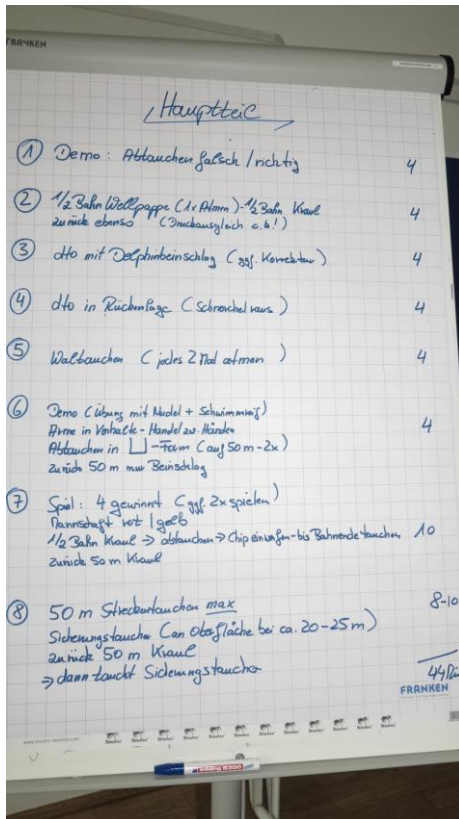 FRANKEN
Hauptteil
① Demo: Abtauchen falsch / richtig 4
② 1/2 Bahn Wellpappe (1x Atmen) - 1/2 Bahn Kraul 4
zurück ebenso (Druckausgleich o.k.!)
③ dto mit Delphinbeinschlag (ggf. Korrektur) 4
④ dto in Rückenlage (Schnorchel raus) 4
⑤ Waltauchen (jedes 2 Mal atmen) 4
⑥ Demo (Übung mit Nudel + Schwimmreif)
Arme in Vorhalte - Handel zw. Händen 4
Abtauchen in ⊔-Form (auf 50 m - 2x)
zurück 50 m nur Beinschlag
⑦ Spiel: 4 gewinnt (ggf. 2x spielen)
Mannschaft rot / gelb
1/2 Bahn Kraul ⇒ abtauchen ⇒ Chip einwerfen - bis Bahnende tauchen 10
zurück 50 m Kraul
⑧ 50 m Streckentauchen max 8-10
Sicherungstaucher (an Oberfläche bei ca. 20-25 m)
zurück 50 m Kraul
⇒ dann taucht Sicherungstaucher
44
FRANKEN